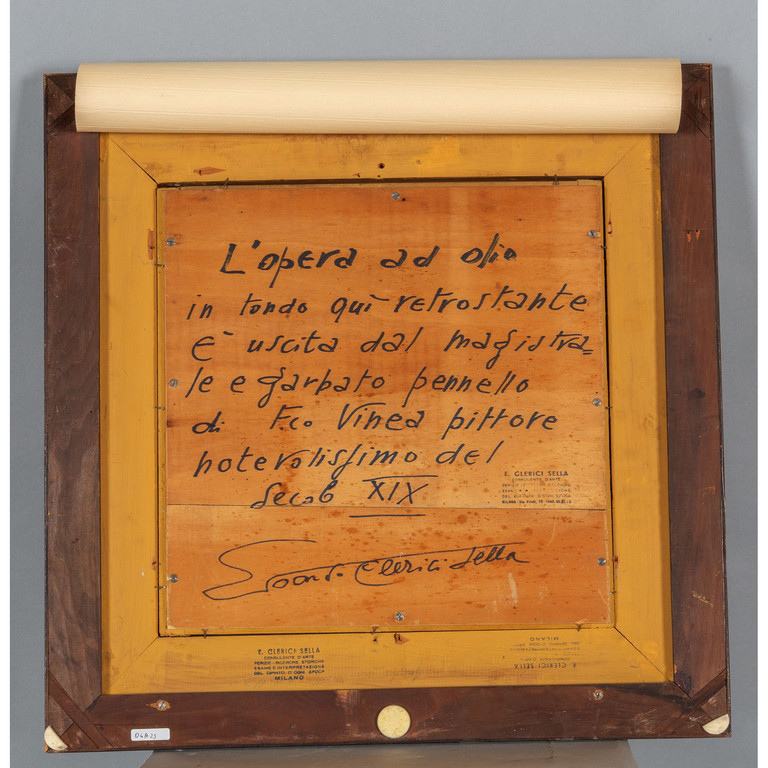 L'opera ad olio
in tondo quì retrostante
è uscita dal magistra=
le e garbato pennello
di F.co Vinea pittore
notevolissimo del
secolo XIX
E. CLERICI SELLA
CONSULENTE D'ARTE
Edoardo Clerici Sella
E. CLERICI SELLA
CONSULENTE D'ARTE
PERIZIE - RICERCHE STORICHE
ESAME E INTERPRETAZIONE
DEL DIPINTO D'OGNI EPOCA
MILANO
E. CLERICI SELLA
CONSULENTE D'ARTE
MILANO
04A23